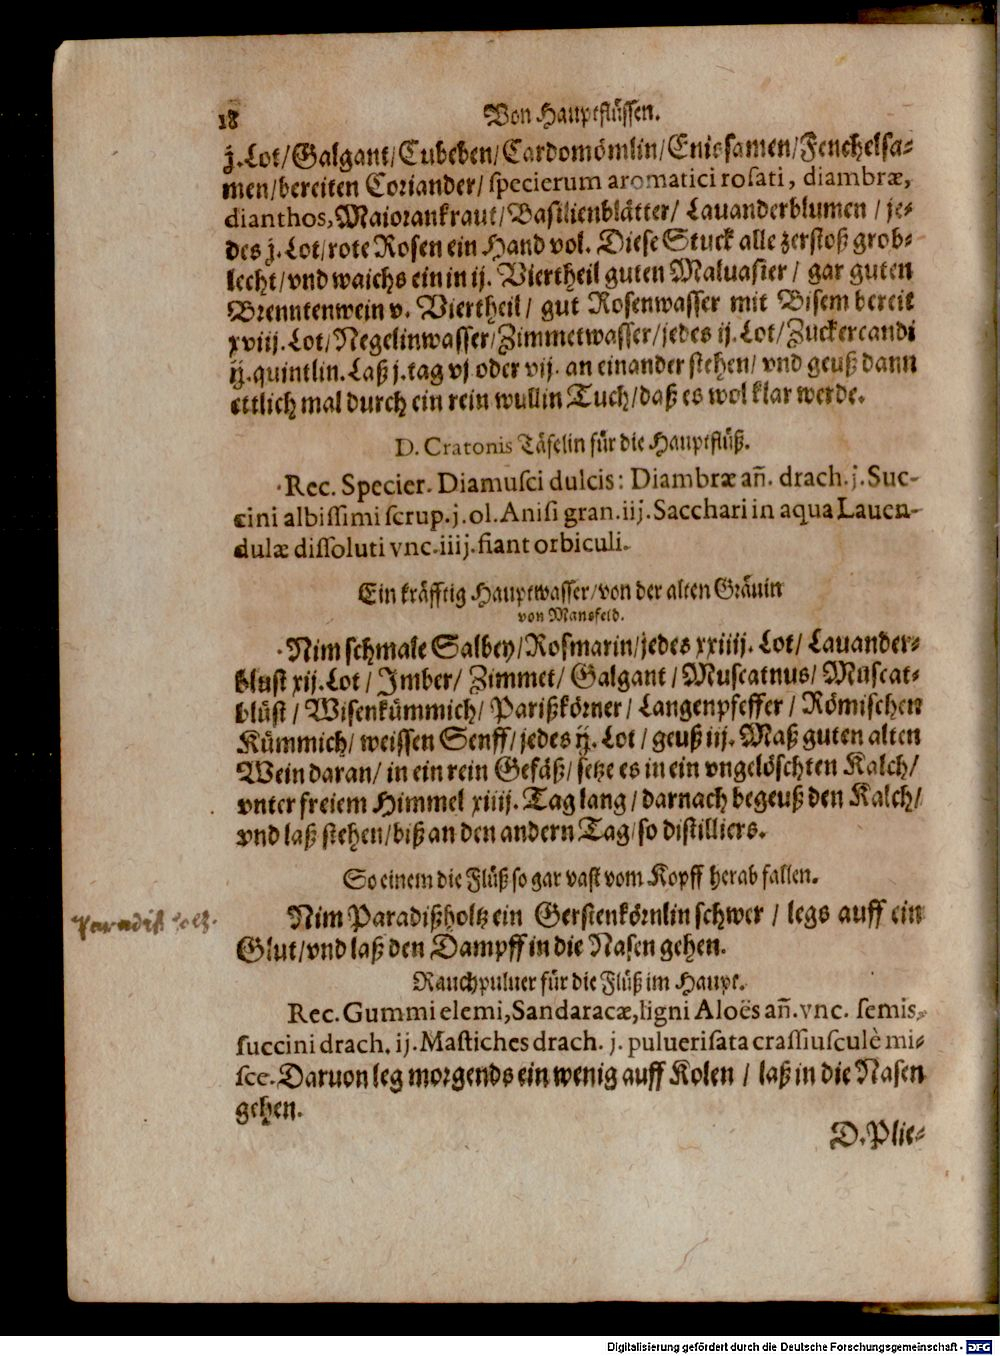 18 Von Hauptflüssen.
j. Lot/Galgant/Cubeben/Cardomömlin/Enissamen/Fenchelsa-
men/bereiten Coriander/ specierum aromatici rosati, diambræ,
dianthos, Maiorankraut/Basilienblätter/ Lauanderblumen / je-
des j. Lot/rote Rosen ein Hand vol. Diese Stuck alle zerstoß grob-
lecht/vnd waichs ein in ij. Viertheil guten Maluasier/ gar guten
Brenntenwein v. Viertheil/ gut Rosenwasser mit Bisem bereit
xviij. Lot/Negelinwasser/Zimmetwasser/jedes ij. Lot/Zuckercandi
ij. quintlin. Laß j. tag vj oder vij. an einander stehen/ vnd geuß dann
ettlich mal durch ein rein wullin Tuch/daß es wol klar werde.
D. Cratonis Täfelin für die Hauptflüß.
Rec. Specier. Diamusci dulcis: Diambræ añ. drach. j. Suc-
cini albissimi scrup. j. ol. Anisi gran. iij. Sacchari in aqua Lauen-
dulæ dissoluti vnc. iiij. fiant orbiculi.
Ein kräfftig Hauptwasser/von der alten Gräuin
von Mansfeld.
Nim schmale Salbey/Rosmarin/jedes xxiiij. Lot/ Lauander-
blust xij. Lot / Imber/ Zimmet/ Galgant / Muscatnus/ Muscat-
blüst / Wisenkümmich/ Parißkörner / Langenpfeffer / Römischen
Kümmich/ weissen Senff/jedes ij. Lot / geuß iij. Maß guten alten
Wein daran/ in ein rein Gefäß/ setze es in ein vngelöschten Kalch/
vnter freiem Himmel xiiij. Tag lang / darnach begeuß den Kalch/
vnd laß stehen/biß an den andern Tag/so distilliers.
So einem die Flüß so gar vast vom Kopff herab fallen.
Paradiß holtz.
Nim Paradißholtz ein Gerstenkörnlin schwer / legs auff ein
Glut/vnd laß den Dampff in die Nasen gehen.
Rauchpuluer für die Flüß im Haupt.
Rec. Gummi elemi, Sandaracæ, ligni Aloës añ. vnc. semis,
succini drach. ij. Mastiches drach. j. puluerisata crassiusculè mi-
sce. Daruon leg morgends ein wenig auff Kolen / laß in die Nasen
gehen.
D. Plie-
Digitalisierung gefördert durch die Deutsche Forschungsgemeinschaft - DFG